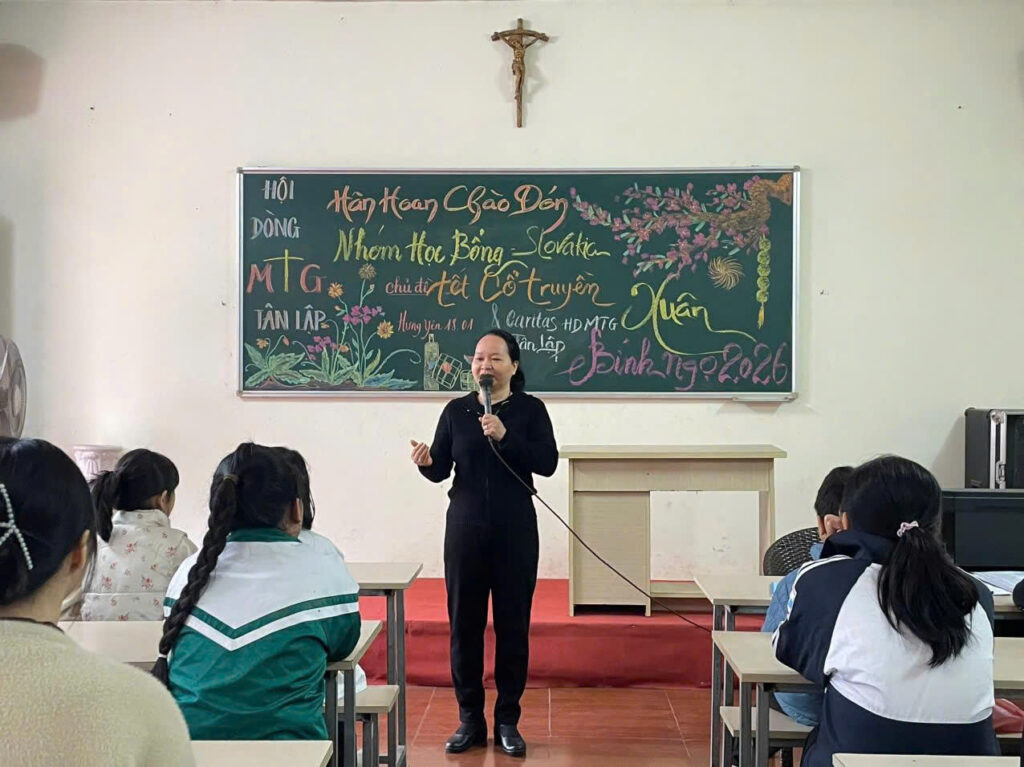 HỘI
DÒNG
MTG
TÂN LẬP
Hân Hoan Chào Đón
Nhóm Học Bổng - Slovakia
chủ đề Tết Cổ truyền
Hưng Yên 18.01
& Caritas HD MTG
Tân Lập
Xuân
Bính ngọ 2026